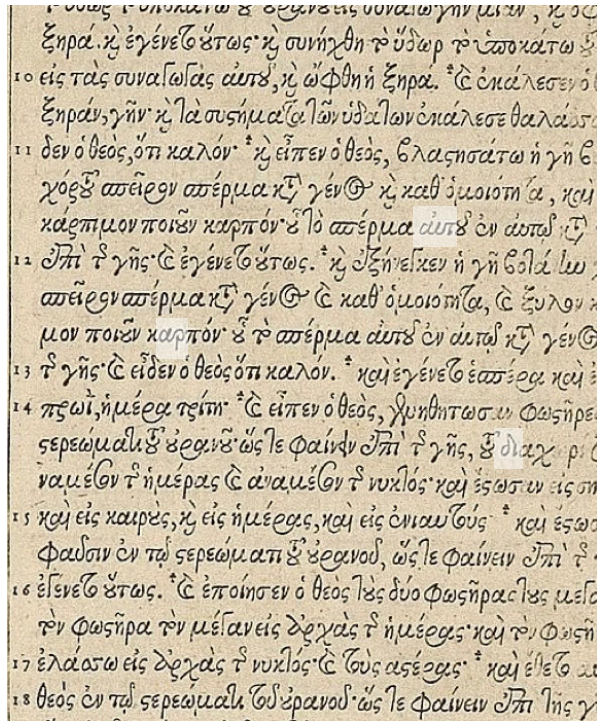 ξηρά. καὶ ἐγένετο οὕτως· καὶ συνήχθη τὸ ὕδωρ τὸ ὑποκάτω τοῦ
10 εἰς τὰς συναγωγὰς αὐτοῦ, καὶ ὤφθη ἡ ξηρά. καὶ ἐκάλεσεν ὁ
ξηράν, γῆν· καὶ τὰ συστήματα τῶν ὑδάτων ἐκάλεσε
11 δεν ὁ θεὸς, ὅτι καλόν. καὶ εἶπεν ὁ θεὸς, βλαστησάτω ἡ γῆ
χόρτου σπεῖρον σπέρμα κατὰ γένος καὶ καθ' ὁμοιότητα, καὶ
κάρπιμον ποιοῦν καρπόν· οὗ τὸ σπέρμα αὐτοῦ ἐν αὐτῷ κατὰ
12 ἐπὶ τῆς γῆς· καὶ ἐγένετο οὕτως. καὶ ἐξήνεγκεν ἡ γῆ
σπεῖρον σπέρμα κατὰ γένος καὶ καθ' ὁμοιότητα, καὶ ξύλον
μον ποιοῦν καρπόν· οὗ τὸ σπέρμα αὐτοῦ ἐν αὐτῷ κατὰ γένος
13 τῆς γῆς· καὶ εἶδεν ὁ θεὸς ὅτι καλόν. καὶ ἐγένετο ἑσπέρα καὶ
14 πρωῒ, ἡμέρα τρίτη. καὶ εἶπεν ὁ θεὸς, γενηθήτωσαν
στερεώματι τοῦ οὐρανοῦ· ὥστε φαίνειν ἐπὶ τῆς γῆς, τοῦ
ναμέσον τῆς ἡμέρας καὶ ἀναμέσον τῆς νυκτός· καὶ ἔστωσαν εἰς
15 καὶ εἰς καιρούς, καὶ εἰς ἡμέρας, καὶ εἰς ἐνιαυτούς. καὶ
φαῦσιν ἐν τῷ στερεώματι τοῦ οὐρανοῦ, ὥστε φαίνειν ἐπὶ τῆς
16 ἐγένετο οὕτως. καὶ ἐποίησεν ὁ θεὸς τοὺς δύο φωστῆρας τοὺς
τὸν φωστῆρα τὸν μέγαν εἰς ἀρχὰς τῆς ἡμέρας· καὶ τὸν
17 ἐλάσσω εἰς ἀρχὰς τῆς νυκτός· καὶ τοὺς ἀστέρας. καὶ ἔθετο
18 θεὸς ἐν τῷ στερεώματι τοῦ οὐρανοῦ· ὥστε φαίνειν ἐπὶ τῆς